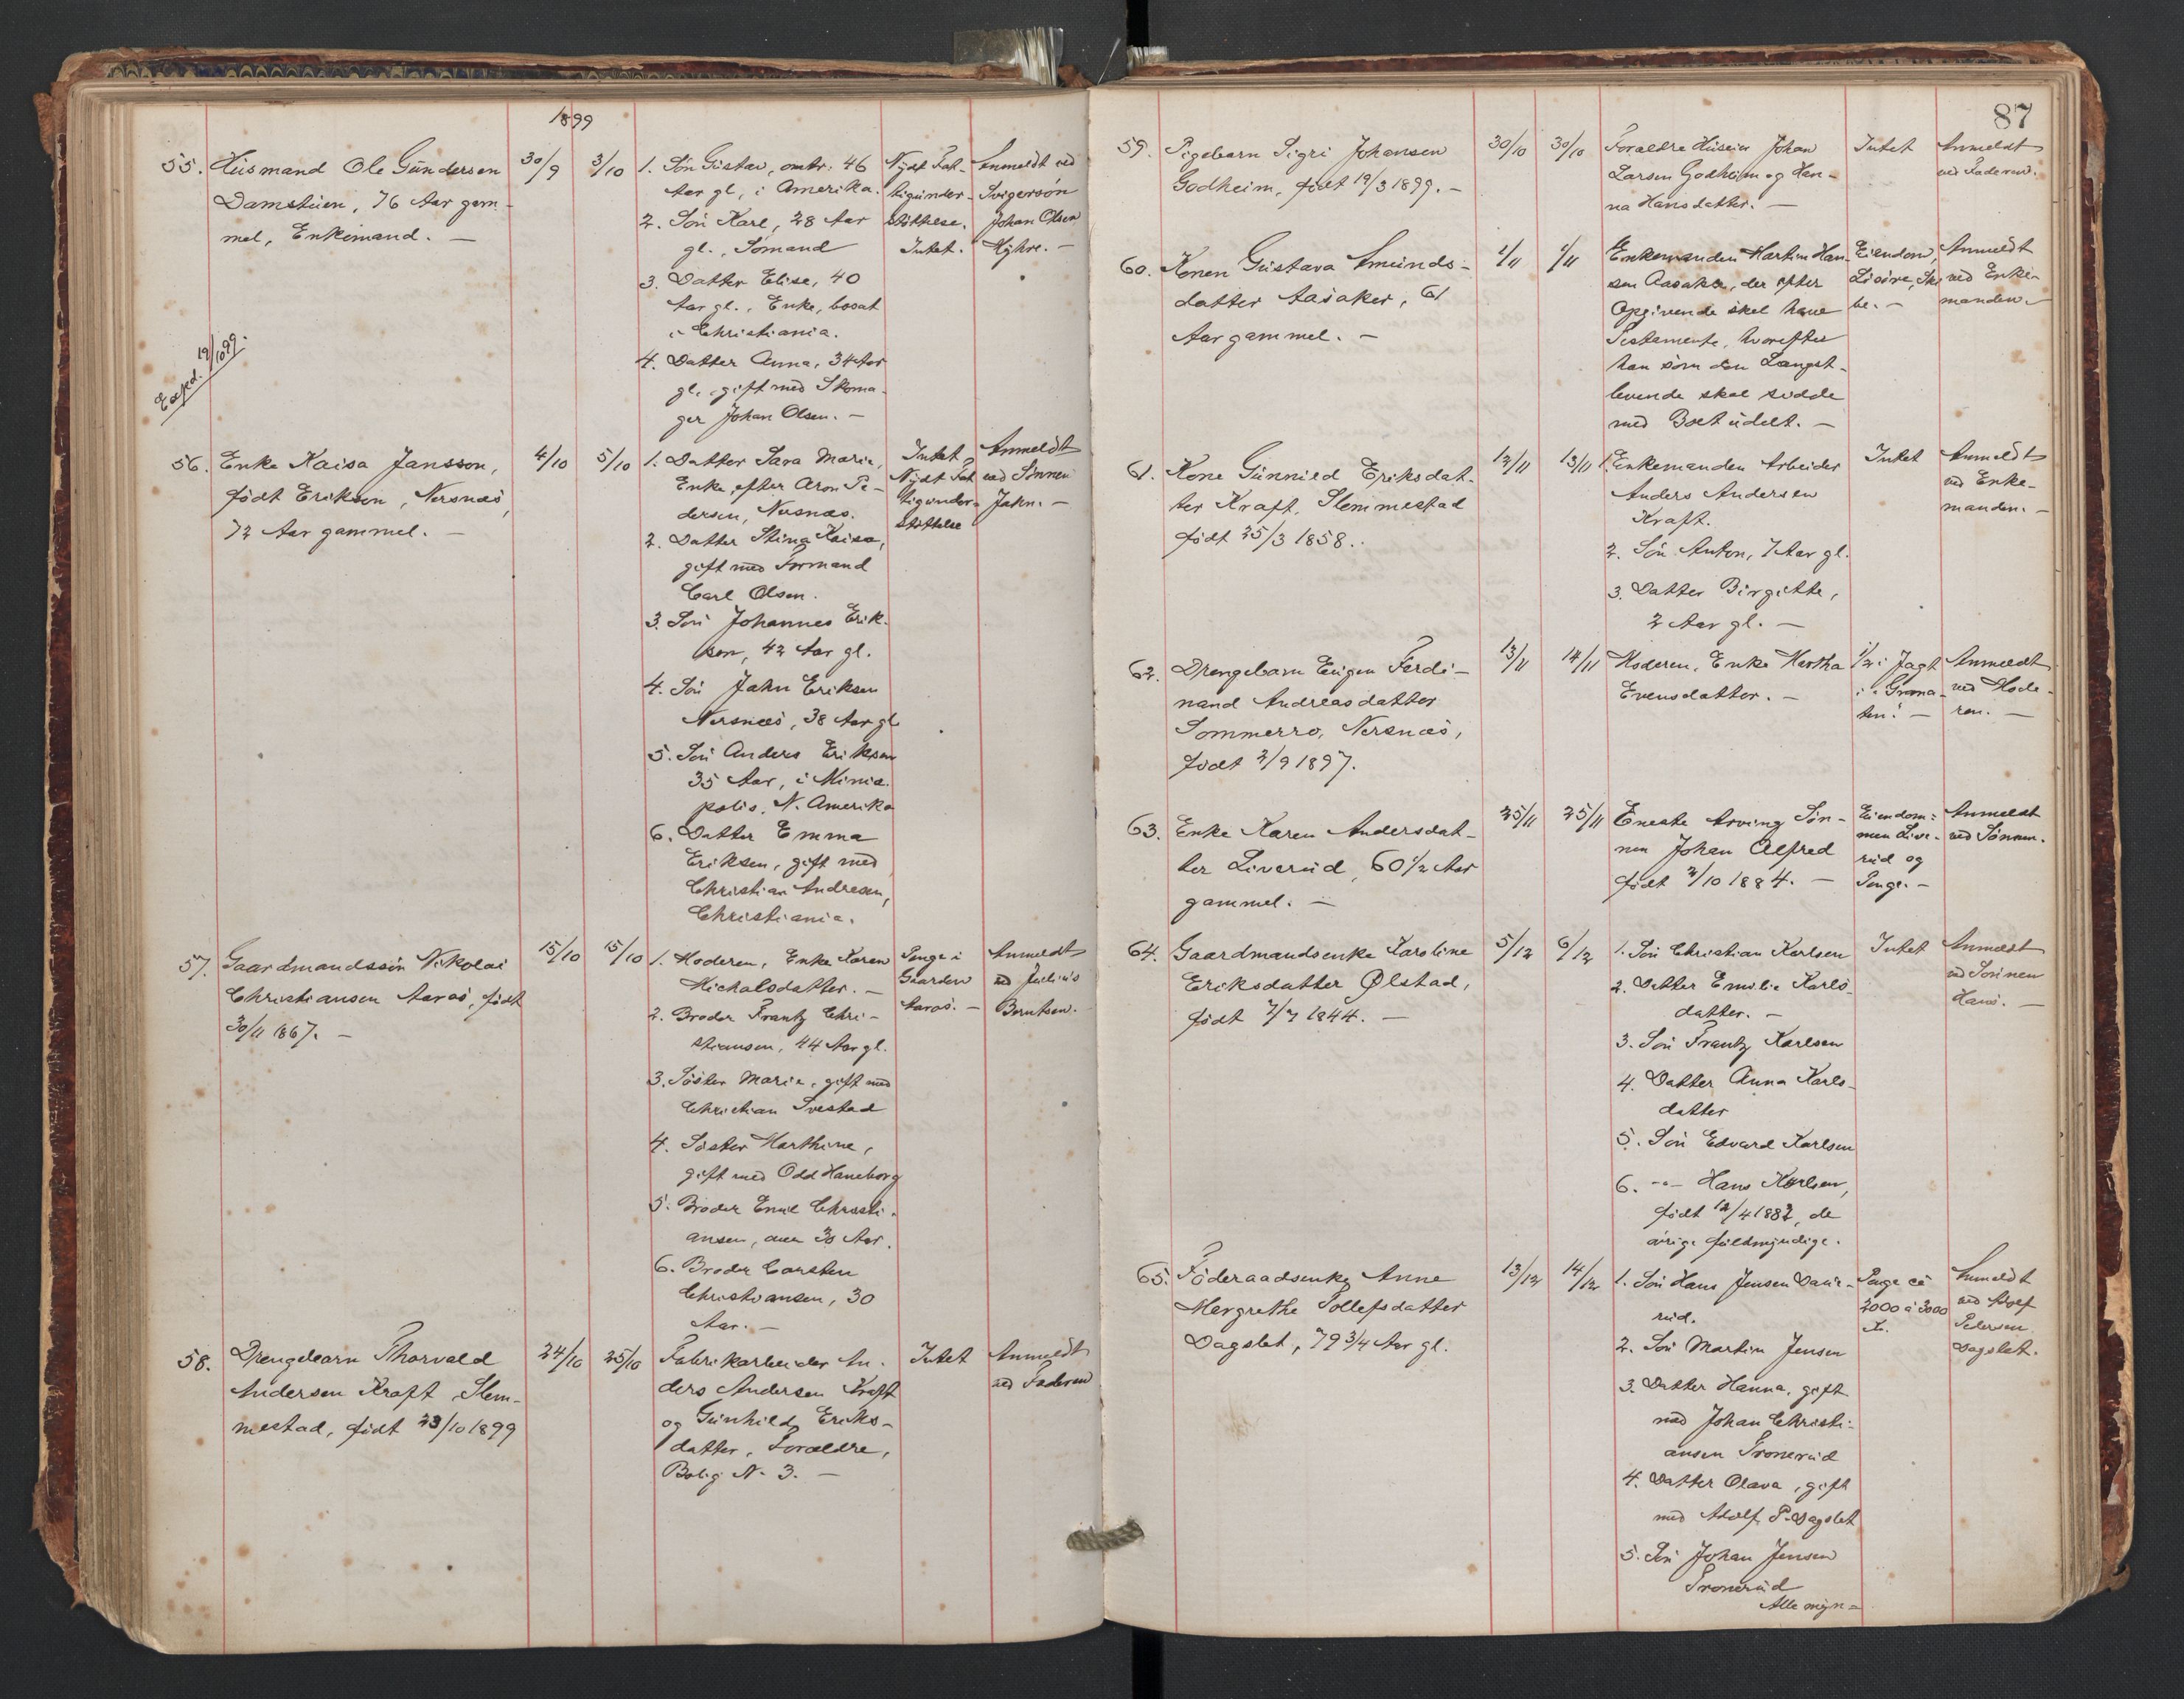 1899
55. Husmand Ole Gundersen
Damstuen, 76 Aar gam-
mel, Enkemand. —
30/9
3/10
1. Søn Gustav, omtr. 46
Aar gl., i Amerika.
2. Søn Karl, 28 Aar
gl., Sømand
3. Datter Elise, 40
Aar gl., Enke, bosat
i Christiania.
4. Datter Anna, 34 Aar
gl., gift med Skoma-
ger Johan Olsen. —
Nydt Fat-
tigunder-
støttelse.
Intet.
Anmeldt ved
Svigersøn
Johan Olsen
Exped. 19/10 99.
56. Enke Kaisa Jansson,
født Eriksen, Nersnæs,
72 Aar gammel. —
4/10
5/10
1. Datter Sara Marie,
Enke efter Aron Pe-
dersen, Nersnæs.
2. Datter Stina Kaisa,
gift med Formand
Carl Olsen.
3. Søn Johannes Erik-
sen, 42 Aar gl.
4. Søn Jahn Eriksen
Nersnæs, 38 Aar gl.
5. Søn Anders Eriksen
35 Aar, i Minia-
polis, N. Amerika
6. Datter Emma
Eriksen, gift med
Christian Andresen,
Christiania.
Intet,
Nydt Fat-
tigunder-
støttelse
Anmeldt
ved Sønnen
Jahn. —
57. Gaardmandssøn Nikolai
Christiansen Aaros, født
30/11 1867. —
15/10
15/10
1. Moderen, Enke Karen
Michalsdatter. —
2. Broder Frantz Chri-
stiansen, 44 Aar gl.
3. Søster Marie, gift med
Christian Svestad
4. Søster Marthine,
gift med Odd Haneborg
5. Broder Emil Christi-
ansen, 30 Aar.
6. Broder Carsten
Christiansen, 30
Aar. —
Penge i
Gaarden
Aaros. —
Anmeldt
ved Julius
Berntsen.
58. Drengebarn Thorvald
Andersen Kraft Slem-
mestad, født 23/10 1899
24/10
25/10
Fabrikarbeider An-
ders Andersen Kraft
og Gunhild Eriks-
datter, Forældre,
Bolig N. 3. —
Intet
Anmeldt
ved Faderen
87
59. Pigebarn Sigri Johansen
Godheim, født 19/3 1899. —
30/10
30/10
Forældre Huseier Johan
Larsen Godheim og Han-
na Hansdatter. —
Intet
Anmeldt
ved Faderen.
60. Konen Gustava Amunds-
datter Aasaker, 61
Aar gammel. —
1/11
1/11
Enkemanden Martin Han-
sen Aasaker, der efter
Opgivende skal have
Testamente, hvorefter
han som den Længst-
levende skal sidde
med Boet udelt. —
Eiendom,
be. —
Anmeldt
ved Enke-
manden. —
61. Kone Gunnild Eriksdat-
ter Kraft, Slemmestad
født 25/3 1858.
12/11
13/11
1. Enkemanden Arbeider
Anders Andersen
Kraft.
2. Søn Anton, 7 Aar gl.
3. Datter Birgitte,
2 Aar gl. —
Intet
Anmeldt
ved Enke-
manden. —
62. Drengebarn Eugen Ferdi-
nand Andreasdatter
Sommerro, Nersnæs,
født 2/9 1897.
13/11
14/11
Moderen, Enke Martha
Evensdatter. —
1/2 i Jagt
Anmeldt
ved Mode-
ren. —
63. Enke Karen Andersdat-
ter Liverud, 60 1/2 Aar
gammel. —
25/11
25/11
Eneste Arving Søn-
nen Johan Alfred
født 2/10 1884. —
Eiendom-
men Live-
rud og
Penge. —
Anmeldt
ved Sønnen.
64. Gaardmandsenke Karoline
Eriksdatter Ølstad,
født 7/7 1844. —
5/12
6/12
1. Søn Christian Karlsen
2. Datter Emilie Karls-
datter. —
3. Søn Frantz Karlsen
4. Datter Anna Karls-
datter
5. Søn Edvard Karlsen
6. -"- Hans Karlsen,
født 12/4 1882, de
øvrige fuldmyndige.
Intet
Anmeldt
ved Sønnen
Hans. —
65. Føderaadsenke Anne
Margrethe Tollefsdatter
Dagslet, 79 3/4 Aar gl.
13/12
14/12
1. Søn Hans Jensen Daue-
rud.
2. Søn Martin Jensen
3. Datter Hanna, gift
med Johan Christi-
ansen Tronerud
4. Datter Olava, gift
med Adolf P. Dagslet
5. Søn Johan Jensen
Tronerud
Alle myn=
Penge ca
2000 à 3000
Kr.
Anmeldt
ved Adolf
Pedersen
Dagslet.